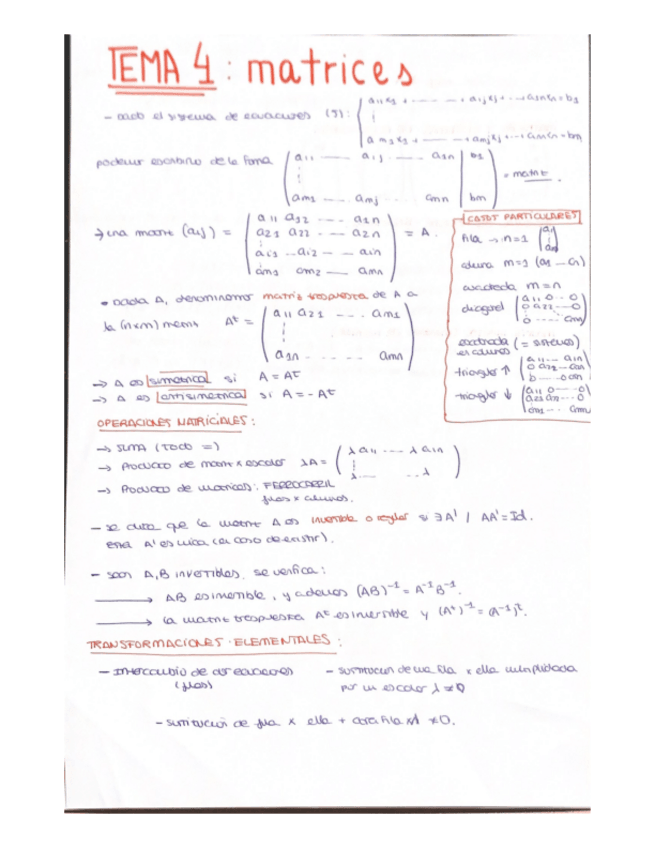 TEMA 4: matrices
- dado el sistema de ecuaciones (S): { a11x1 + ---- + a1jxj + ... a1nxn = b1
a m1x1 + ---- + amjxj + ... amnxn = bm
podemos escribirlo de la forma ( a11 ---- a1j ---- a1n | b1
am1 ---- amj amn | bm ) = matriz
→ una matriz (aij) = ( a11 a12 --- a1n
a21 a22 --- a2n
ai1 -- ai2 - - ain
am1 am2 --- amn ) = A.
CASOS PARTICULARES
fila → n=1 ( a1 ⋮ am )
columna m=1 (a1 - an)
cuadrada m=n
diagonal ( a11 0 -- 0
0 a22 --- 0
0 ---- amn )
escalonada (= sistemas)
escalares
triangular ↑ ( a11 --- a1n
0 a22 - a2n
0 --- 0 ann )
triangular ↓ ( a11 0 --- 0
a21 a22 --- 0
am1 --- amn )
• dada A, denominamos matriz traspuesta de A a
la (nxm) At = ( a11 a21 --- am1
a1n ---- amn )
→ A es simetrica si A = At
→ A es antisimetrica si A = - At
OPERACIONES MATRICIALES:
→ SUMA (Todo =)
→ Producto de matriz x escalar λA = ( λ a11 --- λ a1n
λ ---- λ )
→ Producto de matrices: FERROCARRIL
filas x columnas.
- se dice que la matriz A es invertible o regular si ∃A' / AA' = Id.
esta A' es unica (en caso de existir).
- sean A, B invertibles, se verifica:
→ AB es invertible, y ademas (AB)-1 = A-1 B-1.
→ la matriz traspuesta At es invertible y (At)-1 = (A-1)t.
TRANSFORMACIONES ELEMENTALES:
- Intercambio de dos ecuaciones
(filas)
- sustitucion de una fila x ella multiplicada
por un escalar λ ≠ 0
- sustitucion de fila x ella + otra fila xλ ≠ 0.